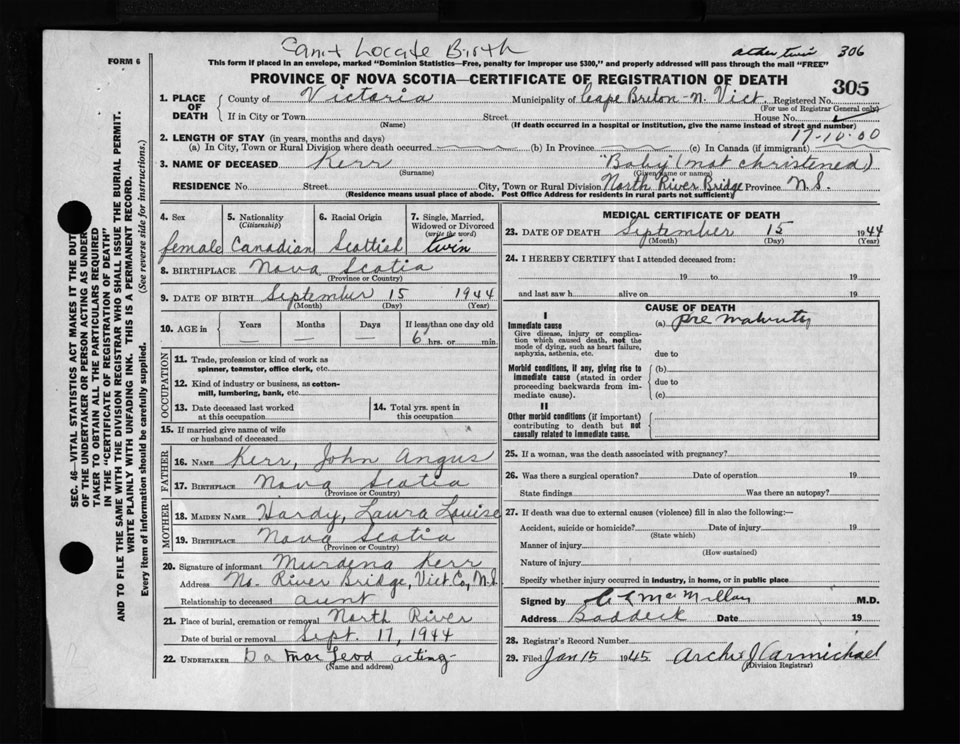 Can't Locate Birth
other twin 306
FORM 6
This form if placed in an envelope, marked "Dominion Statistics—Free, penalty for improper use $300," and properly addressed will pass through the mail "FREE"
PROVINCE OF NOVA SCOTIA—CERTIFICATE OF REGISTRATION OF DEATH
305
1. PLACE OF DEATH
County of Victoria Municipality of Cape Breton - N. Vict. Registered No.
(For use of Registrar General only)
If in City or Town Street House No.
(Name) (If death occurred in a hospital or institution, give the name instead of street and number)
17-10-00
2. LENGTH OF STAY (in years, months and days)
(a) In City, Town or Rural Division where death occurred (b) In Province (c) In Canada (if immigrant)
3. NAME OF DECEASED Kerr "Baby" (not christened)
(Surname) (Given name or names)
RESIDENCE No. Street City, Town or Rural Division North River Bridge Province N.S.
(Residence means usual place of abode. Post Office Address for residents in rural parts not sufficient)
4. Sex
female
5. Nationality
(Citizenship)
Canadian
6. Racial Origin
Scottish
7. Single, Married, Widowed or Divorced
(write the word)
twin
8. BIRTHPLACE Nova Scotia
(Province or Country)
9. DATE OF BIRTH September 15 1944
(Month) (Day) (Year)
10. AGE in Years Months Days If less than one day old
— — — 6 hrs. or min.
OCCUPATION
11. Trade, profession or kind of work as
spinner, teamster, office clerk, etc.
12. Kind of industry or business, as cotton-
mill, lumbering, bank, etc.
13. Date deceased last worked
at this occupation
14. Total yrs. spent in
this occupation
15. If married give name of wife
or husband of deceased
FATHER
16. NAME Kerr, John Angus
17. BIRTHPLACE Nova Scotia
(Province or Country)
MOTHER
18. MAIDEN NAME Hardy, Laura Louise
19. BIRTHPLACE Nova Scotia
(Province or Country)
20. Signature of informant Murdena Kerr
Address No. River Bridge, Vict. Co, N.S.
Relationship to deceased aunt
21. Place of burial, cremation or removal North River
Date of burial or removal Sept. 17, 1944
22. UNDERTAKER D A MacLeod acting-
(Name and address)
MEDICAL CERTIFICATE OF DEATH
23. DATE OF DEATH September 15 1944
(Month) (Day) (Year)
24. I HEREBY CERTIFY that I attended deceased from:
19 to 19
and last saw h alive on 19
CAUSE OF DEATH
I
Immediate cause
Give disease, injury or complica-
tion which caused death, not the
mode of dying, such as heart failure,
asphyxia, asthenia, etc.
(a) prematurity
due to
Morbid conditions, if any, giving rise to
immediate cause (stated in order
proceeding backwards from im-
mediate cause).
(b)
due to
(c)
II
Other morbid conditions (if important)
contributing to death but not
causally related to immediate cause.
25. If a woman, was the death associated with pregnancy?
26. Was there a surgical operation? Date of operation 19
State findings Was there an autopsy?
27. If death was due to external causes (violence) fill in also the following:—
Accident, suicide or homicide? Date of injury 19
(State which)
Manner of injury
(How sustained)
Nature of injury
Specify whether injury occurred in industry, in home, or in public place
Signed by C L MacMillan M.D.
Address Baddeck Date 19
28. Registrar's Record Number
29. Filed Jan 15 1945 Archie J Carmichael
(Division Registrar)
SEC. 46—VITAL STATISTICS ACT MAKES IT THE DUTY
OF THE UNDERTAKER OR PERSON ACTING AS UNDER-
TAKER TO OBTAIN ALL THE PARTICULARS REQUIRED
IN THE "CERTIFICATE OF REGISTRATION OF DEATH"
AND TO FILE THE SAME WITH THE DIVISION REGISTRAR WHO SHALL ISSUE THE BURIAL PERMIT.
WRITE PLAINLY WITH UNFADING INK. THIS IS A PERMANENT RECORD.
Every item of information should be carefully supplied. (See reverse side for instructions.)